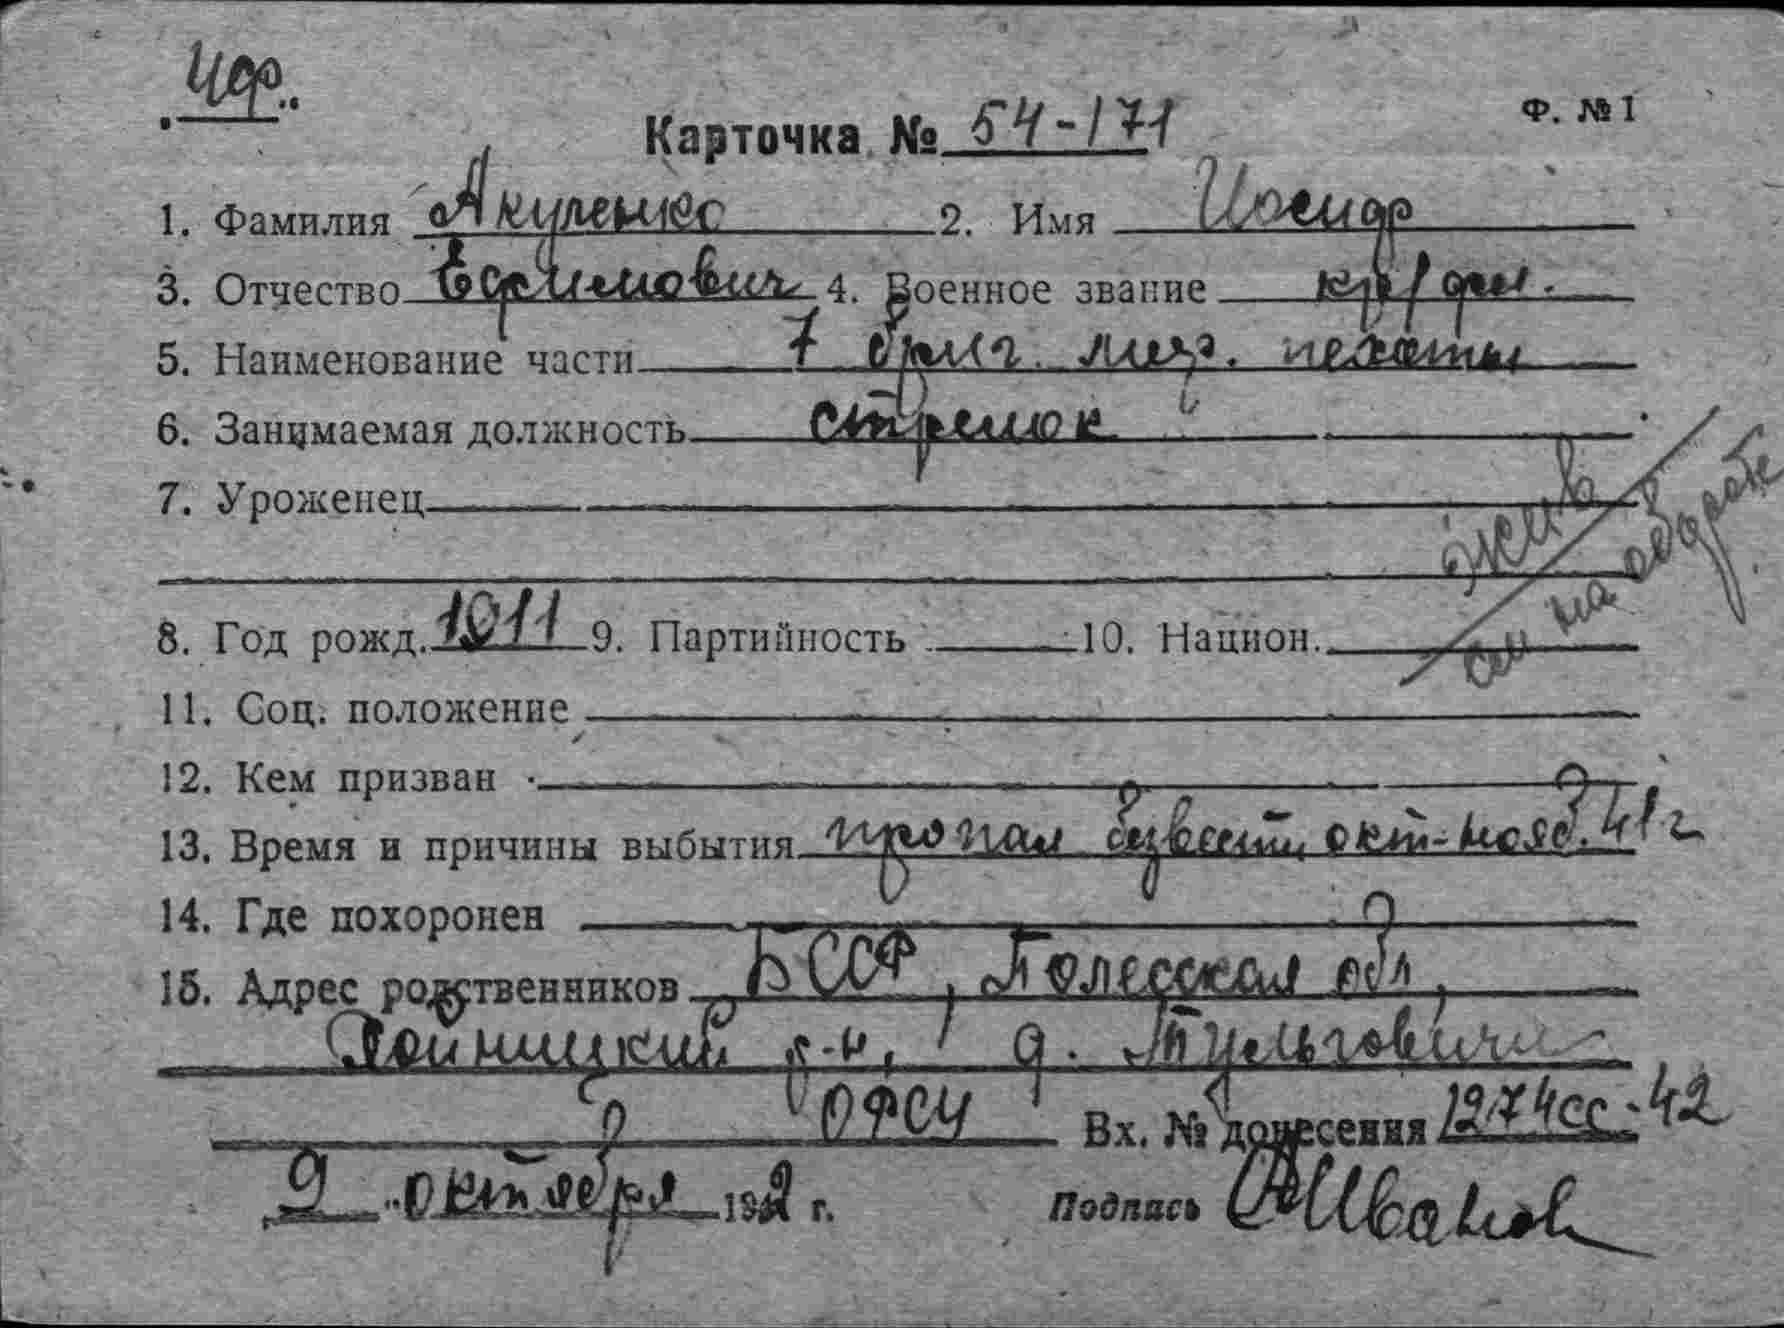 Ф. № 1
Карточка № 54-171
1. Фамилия Акуленко 2. Имя Иосиф
3. Отчество Ефимович 4. Военное звание кр/фл.
5. Наименование части 7 бриг. мор. пехоты
6. Занимаемая должность стрелок
7. Уроженец
жив
см на обороте
8. Год рожд. 1911 9. Партийность 10. Национ.
11. Соц. положение
12. Кем призван
13. Время и причины выбытия пропал безвести окт-нояб. 41 г
14. Где похоронен
15. Адрес родственников БССР, Полесская обл,
Хойницкий р-н, д. Тульговичи
Вх. № донесения 1274сс-42
9 октября 1942 г. Подпись Иванов